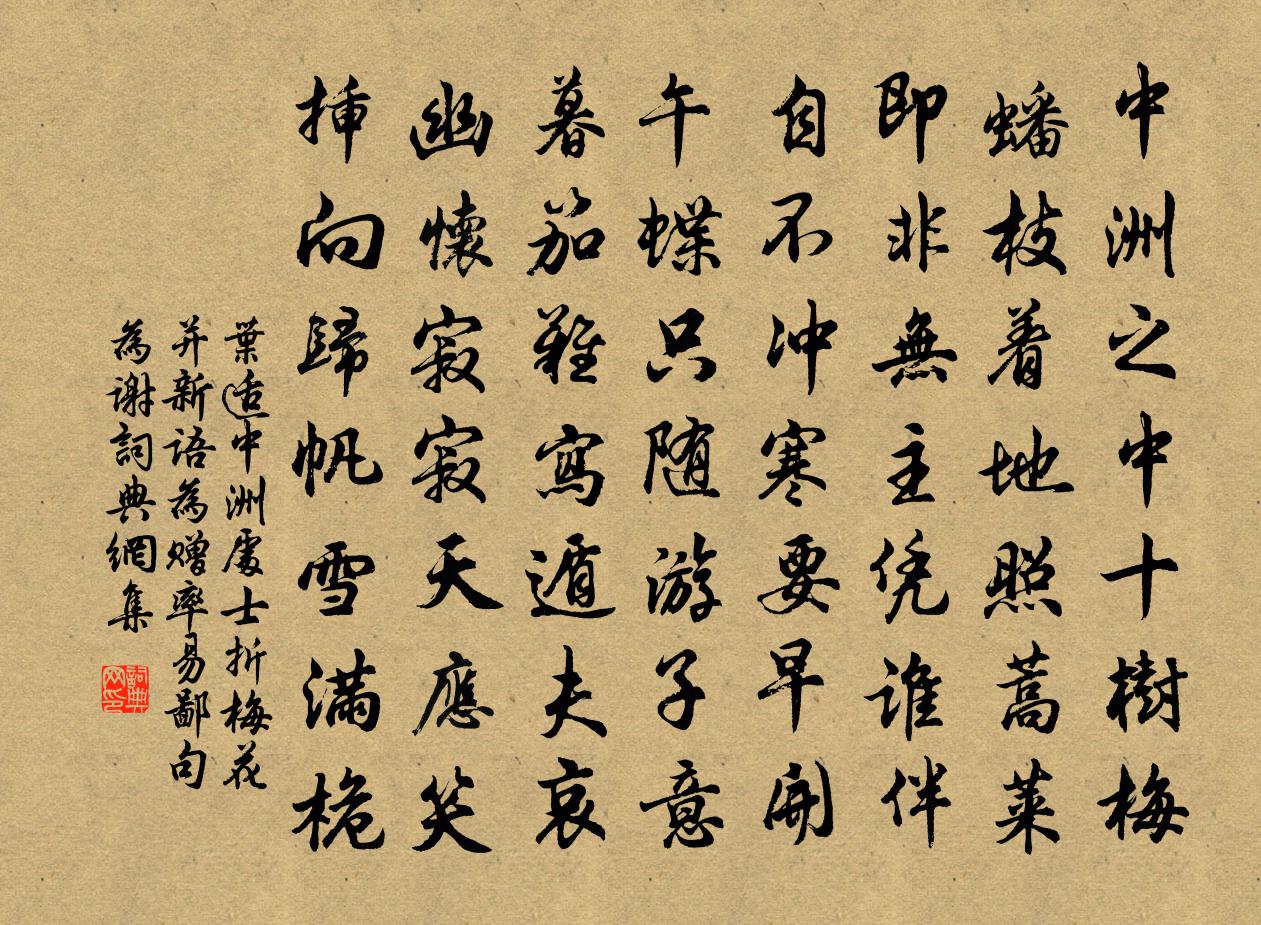 中洲之中十樹梅
蟠枝着地照蒿萊
即非無主凭誰伴
自不沖寒要早開
午蝶只随游子意
暮笳難寫遁夫哀
幽懷寂寂天應笑
挿向歸帆雪满桅
葉适中洲處士折梅花
并新语為赠率易鄙句
為谢詞典網集
詞典
网印